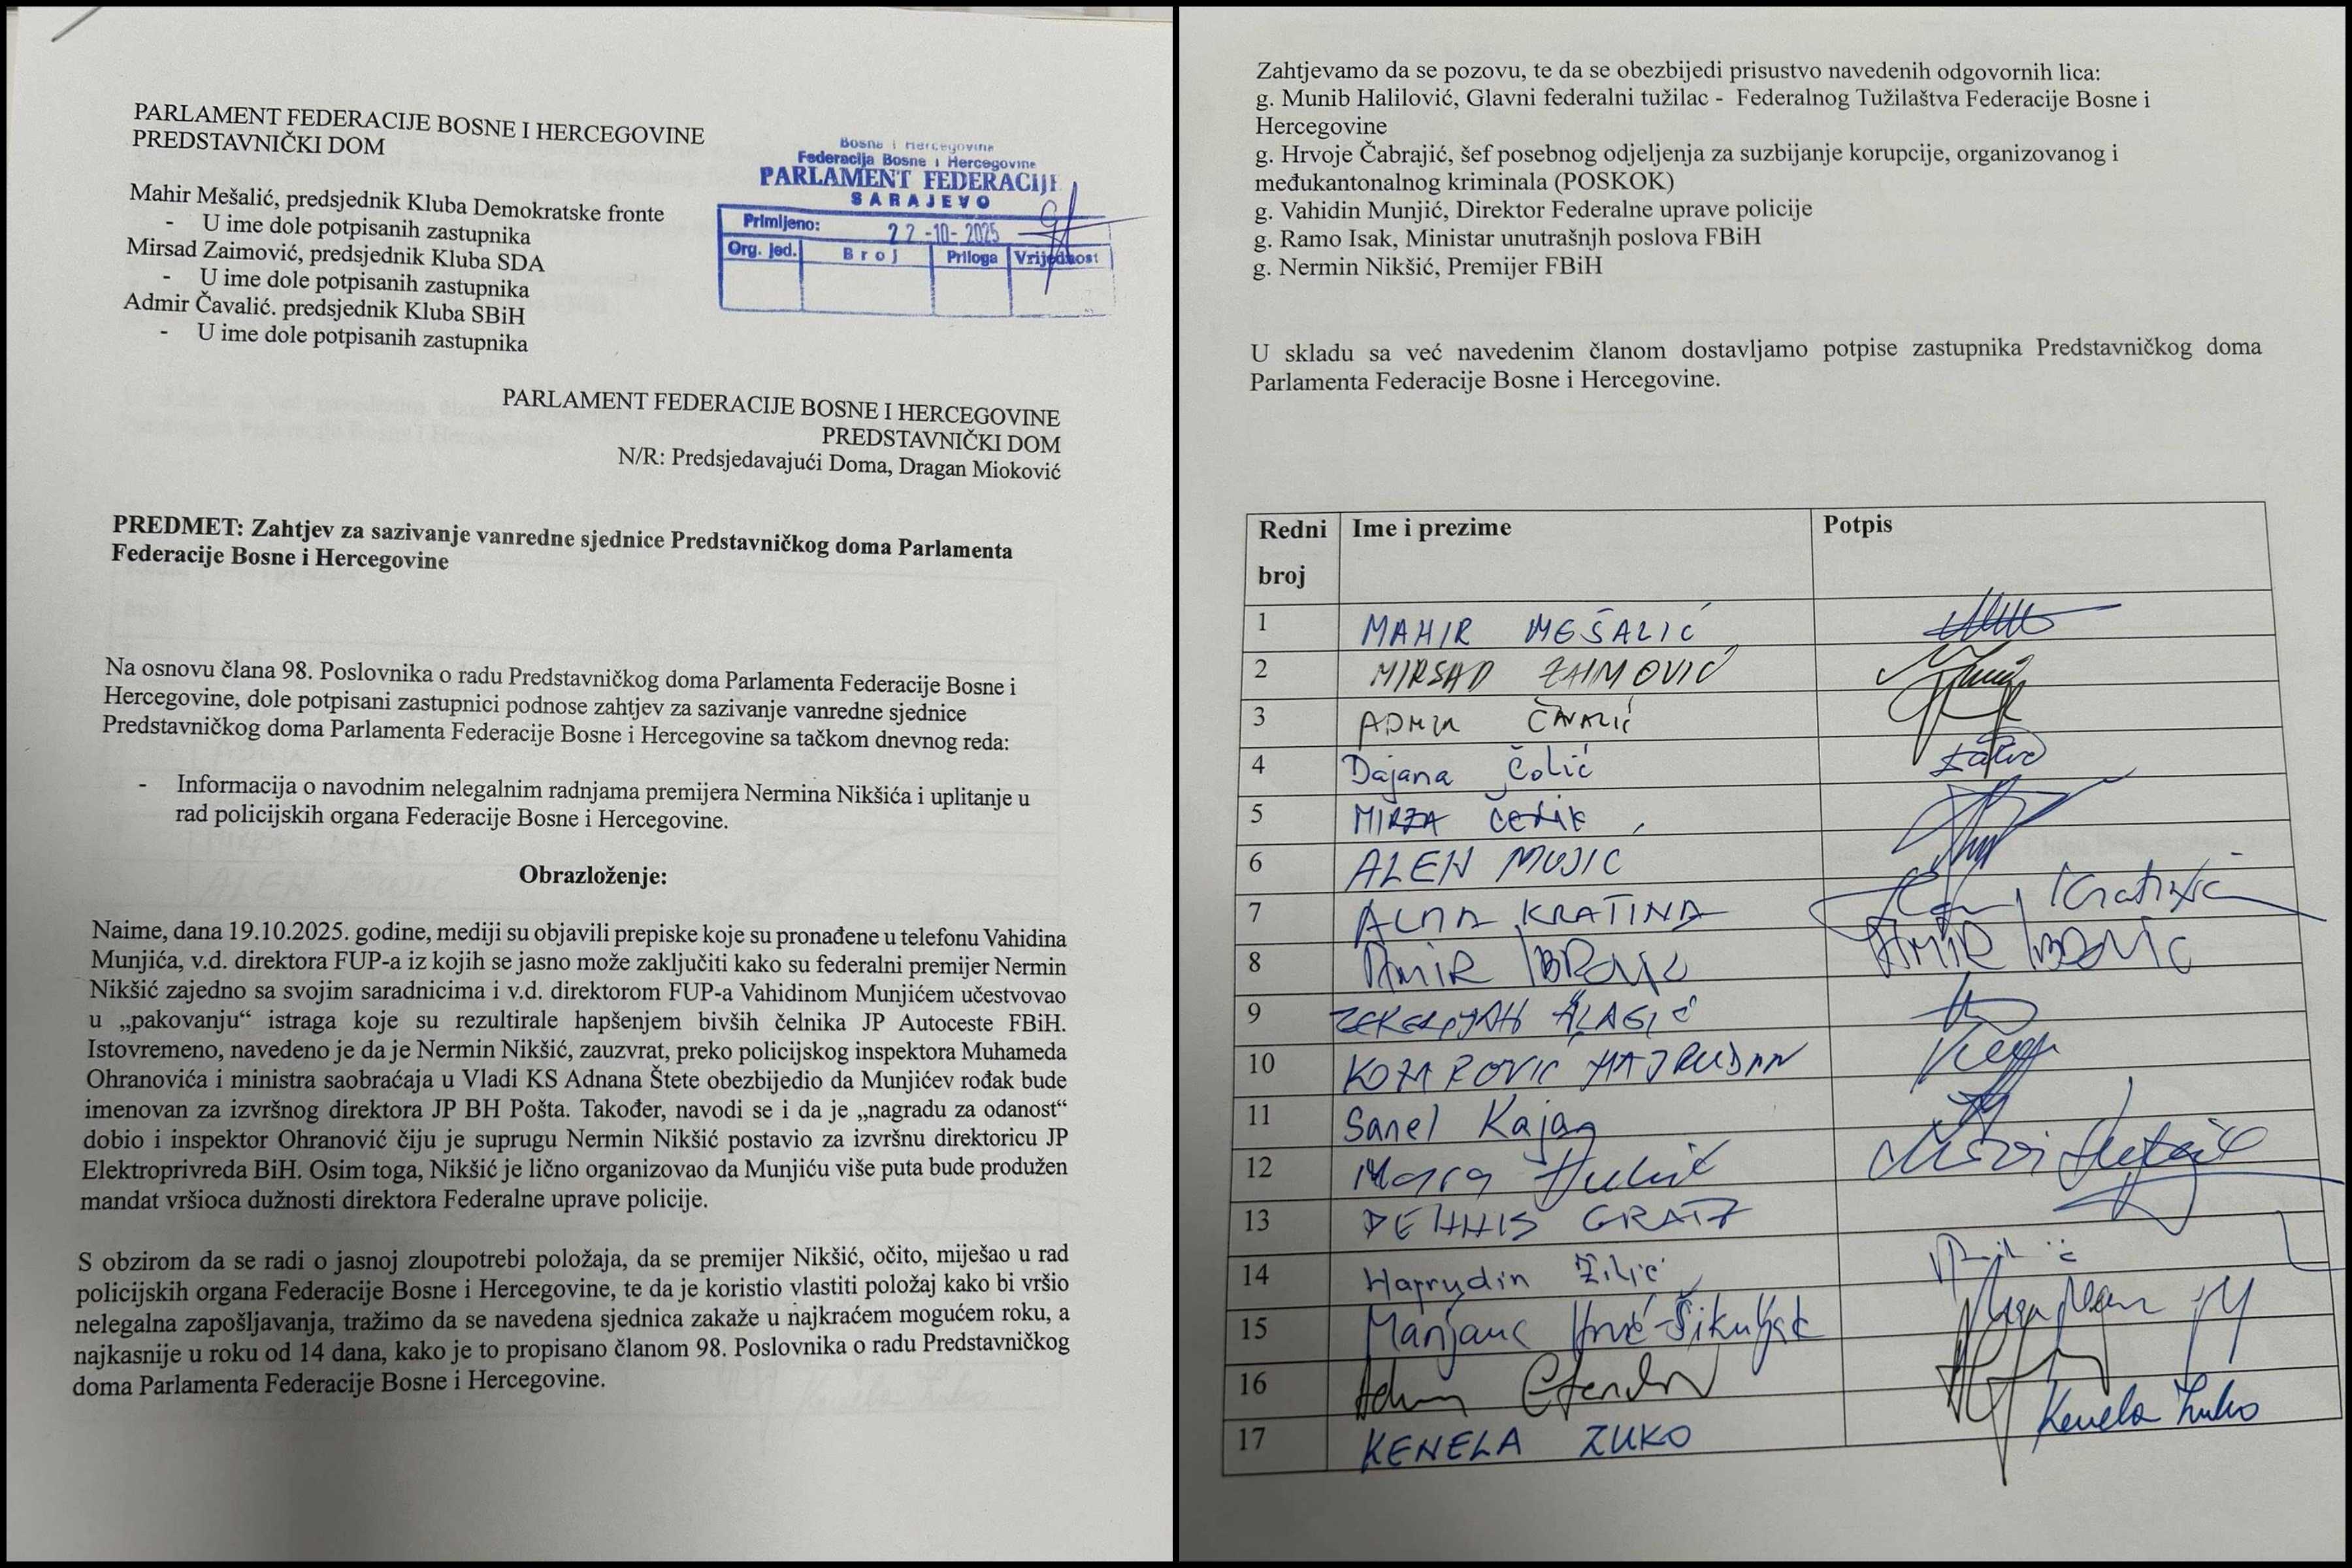 PARLAMENT FEDERACIJE BOSNE I HERCEGOVINE
PREDSTAVNIČKI DOM
Mahir Mešalić, predsjednik Kluba Demokratske fronte
- U ime dole potpisanih zastupnika
Mirsad Zaimović, predsjednik Kluba SDA
- U ime dole potpisanih zastupnika
Admir Čavalić. predsjednik Kluba SBiH
- U ime dole potpisanih zastupnika
Bosna i Hercegovina
Federacija Bosne i Hercegovine
PARLAMENT FEDERACIJE
SARAJEVO
Primljeno: 22-10-2025
Org. jed. Broj Priloga Vrijednost
PARLAMENT FEDERACIJE BOSNE I HERCEGOVINE
PREDSTAVNIČKI DOM
N/R: Predsjedavajući Doma, Dragan Mioković
PREDMET: Zahtjev za sazivanje vanredne sjednice Predstavničkog doma Parlamenta
Federacije Bosne i Hercegovine
Na osnovu člana 98. Poslovnika o radu Predstavničkog doma Parlamenta Federacije Bosne i
Hercegovine, dole potpisani zastupnici podnose zahtjev za sazivanje vanredne sjednice
Predstavničkog doma Parlamenta Federacije Bosne i Hercegovine sa tačkom dnevnog reda:
- Informacija o navodnim nelegalnim radnjama premijera Nermina Nikšića i uplitanje u
rad policijskih organa Federacije Bosne i Hercegovine.
Obrazloženje:
Naime, dana 19.10.2025. godine, mediji su objavili prepiske koje su pronađene u telefonu Vahidina
Munjića, v.d. direktora FUP-a iz kojih se jasno može zaključiti kako su federalni premijer Nermin
Nikšić zajedno sa svojim saradnicima i v.d. direktorom FUP-a Vahidinom Munjićem učestvovao
u „pakovanju“ istraga koje su rezultirale hapšenjem bivših čelnika JP Autoceste FBiH.
Istovremeno, navedeno je da je Nermin Nikšić, zauzvrat, preko policijskog inspektora Muhameda
Ohranovića i ministra saobraćaja u Vladi KS Adnana Štete obezbijedio da Munjićev rođak bude
imenovan za izvršnog direktora JP BH Pošta. Također, navodi se i da je „nagradu za odanost“
dobio i inspektor Ohranović čiju je suprugu Nermin Nikšić postavio za izvršnu direktoricu JP
Elektroprivreda BiH. Osim toga, Nikšić je lično organizovao da Munjiću više puta bude produžen
mandat vršioca dužnosti direktora Federalne uprave policije.
S obzirom da se radi o jasnoj zloupotrebi položaja, da se premijer Nikšić, očito, miješao u rad
policijskih organa Federacije Bosne i Hercegovine, te da je koristio vlastiti položaj kako bi vršio
nelegalna zapošljavanja, tražimo da se navedena sjednica zakaže u najkraćem mogućem roku, a
najkasnije u roku od 14 dana, kako je to propisano članom 98. Poslovnika o radu Predstavničkog
doma Parlamenta Federacije Bosne i Hercegovine.
Zahtjevamo da se pozovu, te da se obezbijedi prisustvo navedenih odgovornih lica:
g. Munib Halilović, Glavni federalni tužilac - Federalnog Tužilaštva Federacije Bosne i
Hercegovine
g. Hrvoje Čabrajić, šef posebnog odjeljenja za suzbijanje korupcije, organizovanog i
međukantonalnog kriminala (POSKOK)
g. Vahidin Munjić, Direktor Federalne uprave policije
g. Ramo Isak, Ministar unutrašnjh poslova FBiH
g. Nermin Nikšić, Premijer FBiH
U skladu sa već navedenim članom dostavljamo potpise zastupnika Predstavničkog doma
Parlamenta Federacije Bosne i Hercegovine.
Redni broj Ime i prezime Potpis
1 MAHIR MEŠALIĆ
2 MIRSAD ZAIMOVIĆ
3 ADMIR ČAVALIĆ
4 Dajana Čolić
5 MIRZA ČELIK
6 ALEN MUJIĆ
7 ALMA KRATINA Kratina
8 AMIR IBROVIC AMIR IBROVIC
9 ALAGIĆ
10 HAJRUDIN
11 Sanel Kajan
12
13 DENNIS GRATZ
14 Hajrudin
15
16
17 KENELA ZUKO Kenela Zuko